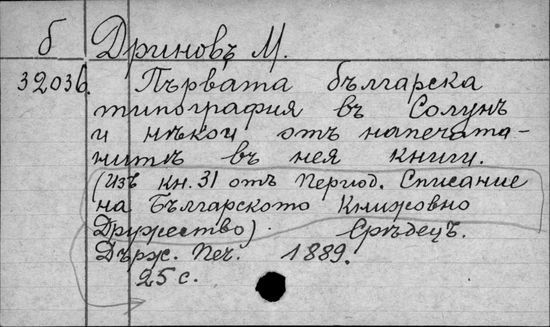 б Дриновъ М.
32036. Първата българска
типография въ Солунъ
и нѣкои отъ напечата-
нитѣ въ нея книги.
(Изъ кн. 31 отъ Период. Списание
на Българското Книжовно
Дружество). Срѣдецъ.
Държ. Печ. 1889.
25 с.